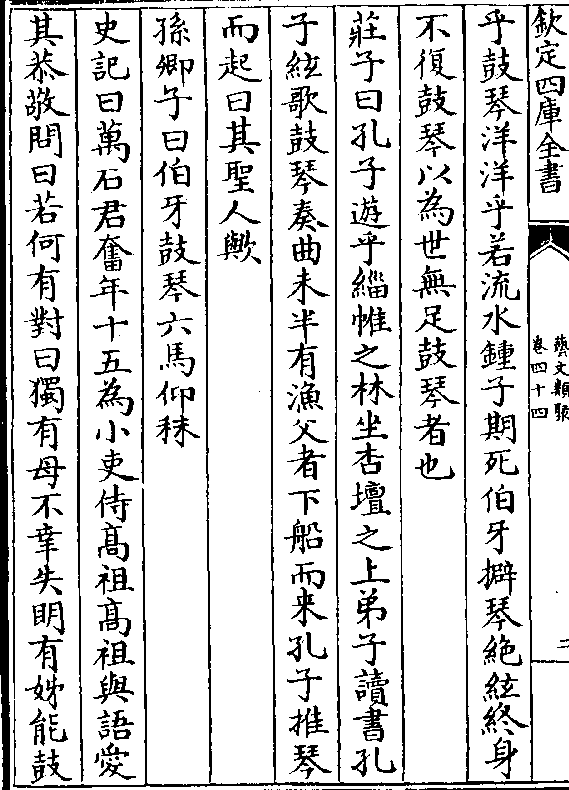 欽定四庫全書
藝文類聚
卷四十四
三
乎鼓琴洋洋乎若流水鍾子期死伯牙擗琴絶絃終身
不復鼓琴以為世無足鼓琴者也
莊子曰孔子遊乎緇帷之林坐杏壇之上弟子讀書孔
子絃歌鼓琴奏曲未半有漁父者下船而来孔子推琴
而起曰其聖人歟
孫卿子曰伯牙鼓琴六馬仰秣
史記曰萬石君奮年十五為小吏侍髙祖髙祖與語愛
其恭敬問曰若何有對曰獨有母不幸失明有姊能鼓